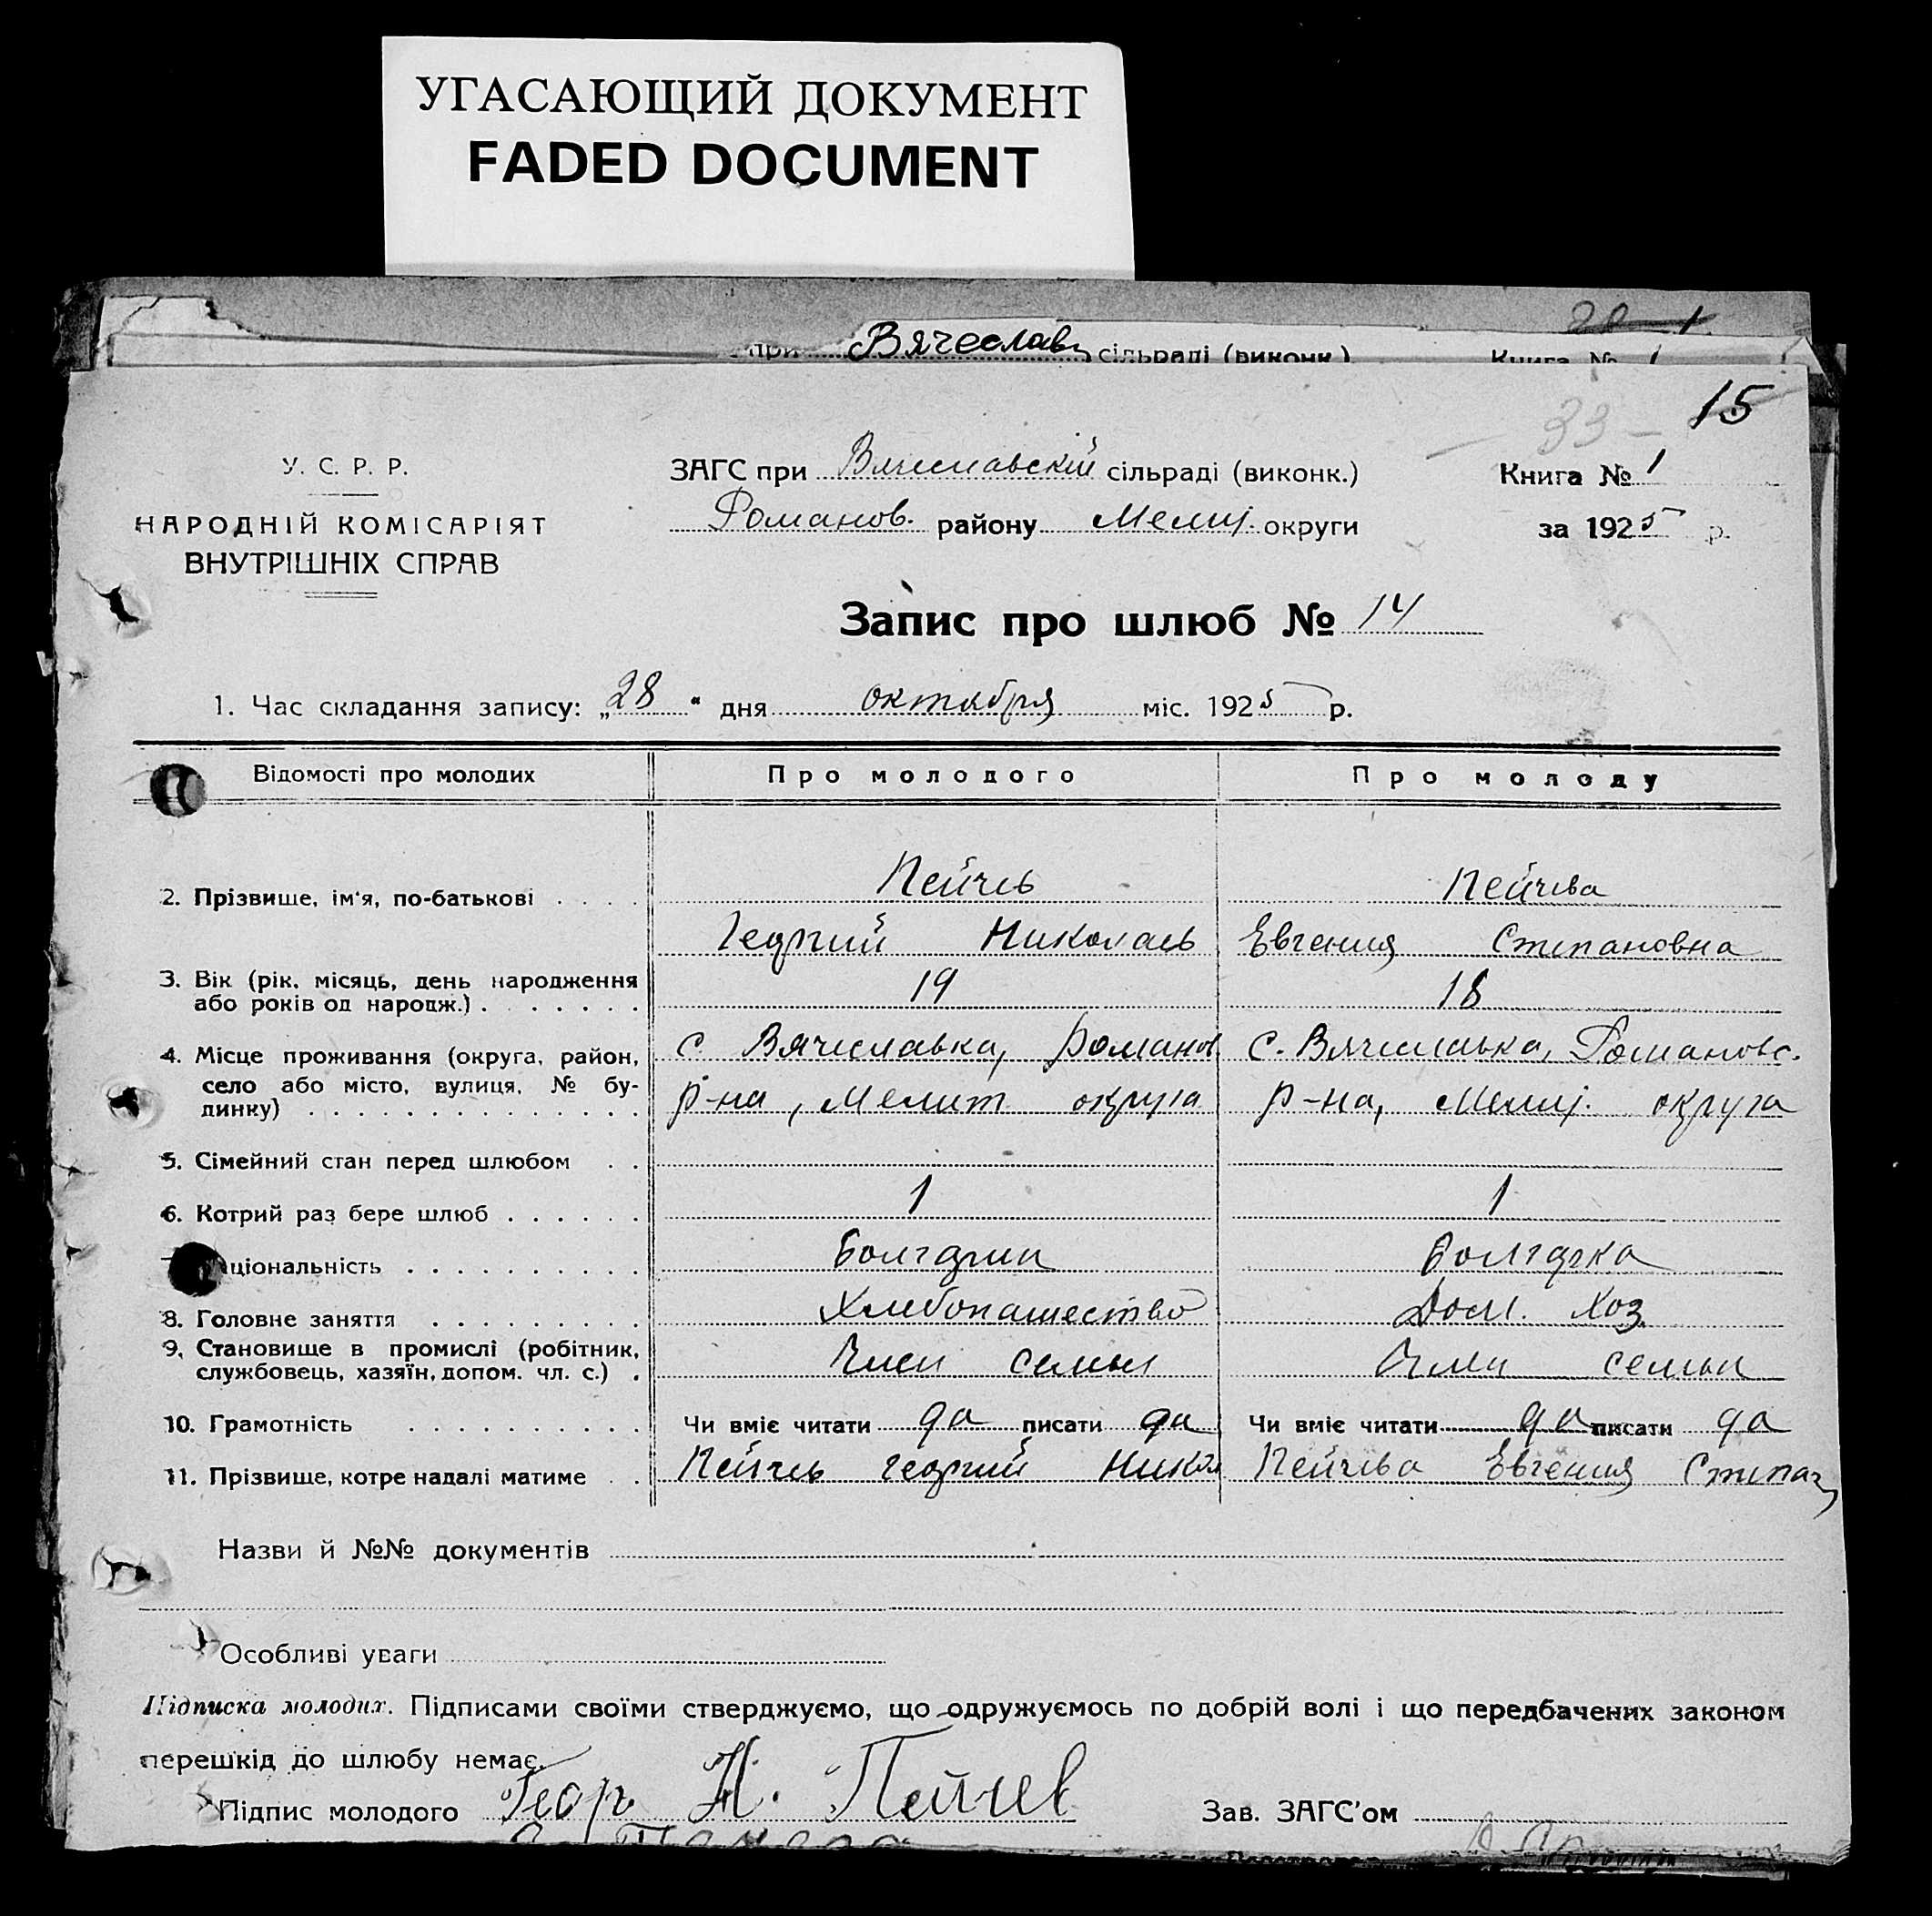 УГАСАЮЩИЙ ДОКУМЕНТ
FADED DOCUMENT
при Вячеславк сільраді (виконк.) Книга № 1
33 – 15
У. С. Р. Р.
НАРОДНІЙ КОМІСАРІЯТ
ВНУТРІШНІХ СПРАВ
ЗАГС при Вячеславскій сільраді (виконк.) Книга № 1
Романов. району Мелит. округи за 1925 р.
Запис про шлюб № 14
1. Час складання запису: „28“ дня октября міс. 1925 р.
Відомості про молодих Про молодого Про молоду
Пейчев Пейчева
2. Прізвище, ім'я, по-батькові . . . .
Георгий Николаев Евгения Степановна
3. Вік (рік, місяць, день народження
або років од народж.) . . . . . . . 19 18
4. Місце проживання (округа, район, с. Вячеславка, Романов. с. Вячеславка, Романовс.
село або місто, вулиця, № бу- р-на, Мелит. округа р-на, Мелит. округа
динку) . . . . . . . . . . . . . .
5. Сімейний стан перед шлюбом . .
6. Котрий раз бере шлюб . . . . . . 1 1
ціональність . . . . . . . . . . Болгарин Болгарка
8. Головне заняття . . . . . . . . . Хлебопашество Дом. Хоз.
9. Становище в промислі (робітник,
службовець, хазяїн, допом. чл. с.) . Член семьи Член семьи
10. Грамотність . . . . . . . . . . Чи вміє читати да писати да Чи вміє читати да писати да
11. Прізвище, котре надалі матиме . . Пейчев Георгий Никол Пейчева Евгения Степан
Назви й №№ документів
Особливі уваги
Підписка молодих. Підписами своїми стверджуємо, що одружуємось по добрій волі і що передбачених законом
перешкід до шлюбу немає.
Підпис молодого Геор Н. Пейчев Зав. ЗАГС'ом